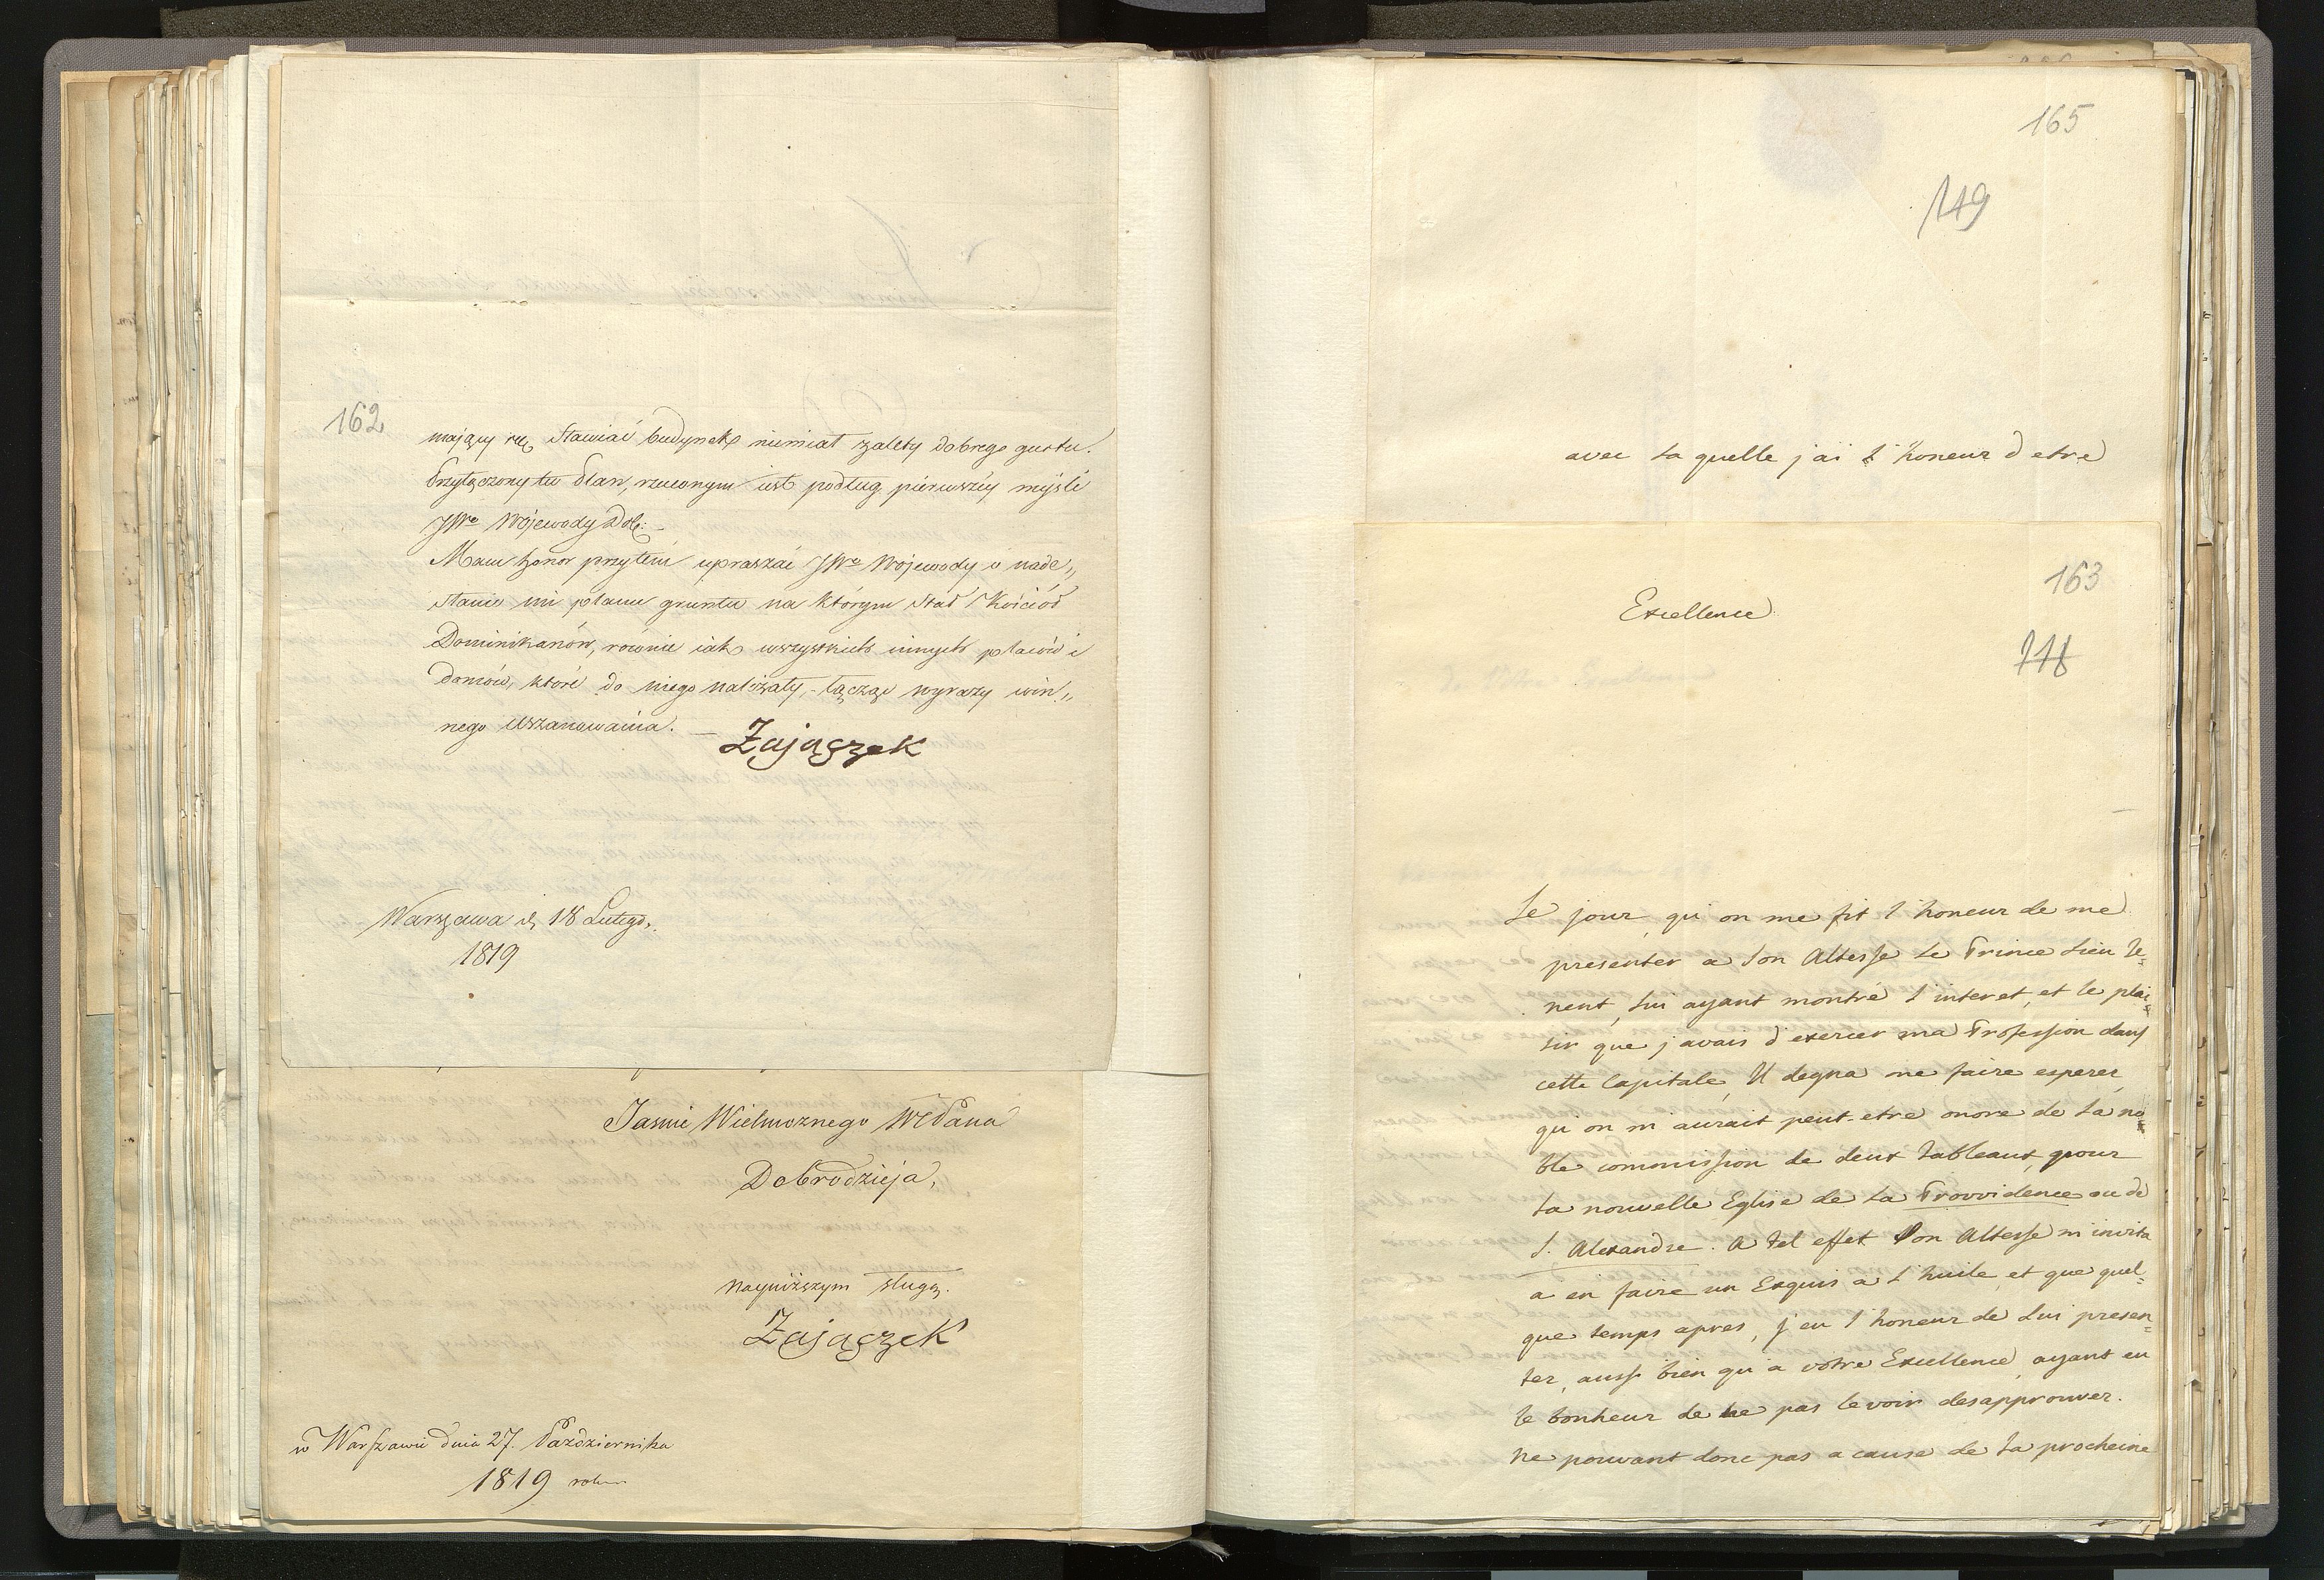 162
mający się stawiać budynek niemiał zalety dobrego gustu.
Przyłączony tu Plan, rzuconym iest podług pierwszéy myśli
JWo Wojewody Dob:
Mam honor przytém upraszać JWo Wojewody o nade„
słanie mi planu gruntu na którym stał Kościół
Dominikanów, równie iak wszystkich innych placów i
domów, które do niego należały, łącząc wyrazy win„
nego uszanowania. —
Zajączek
Warszawa d. 18 Lutego.
1819
Jaśnie Wielmożnego WPana
Dobrodzieja,
Nayniższym sługą.
Zajączek
w Warszawie dnia 27. Października
1819 roku
165
149
avec la quelle j ai l' honeur d etre
163
Excellence
148
Le jour, qu on me fit l' honeur de me
presenter a Son Altesse le Prince Lieu te=
nent, lui ayant montré l' interet, et le plai=
sir que j avais d' exercer ma Profession dans
cette Capitale, Il degna me faire esperer
qu on m aurait peut-etre onoré de la no=
ble commission de deux tableaux, pour
la nouvelle Eglise de la Provvidence ou de
S. Alexandre. A tel effet Son Altesse m' invita
a en faire un Esquis a l' huile, et que quel=
que temps apres, j eu l' honeur de Lui presen=
ter, aussi bien qu' a votre Excellence, ayant eu
le bonheur de ne pas le voir desapprouver.
Ne pouvant donc pas a cause de la procheine